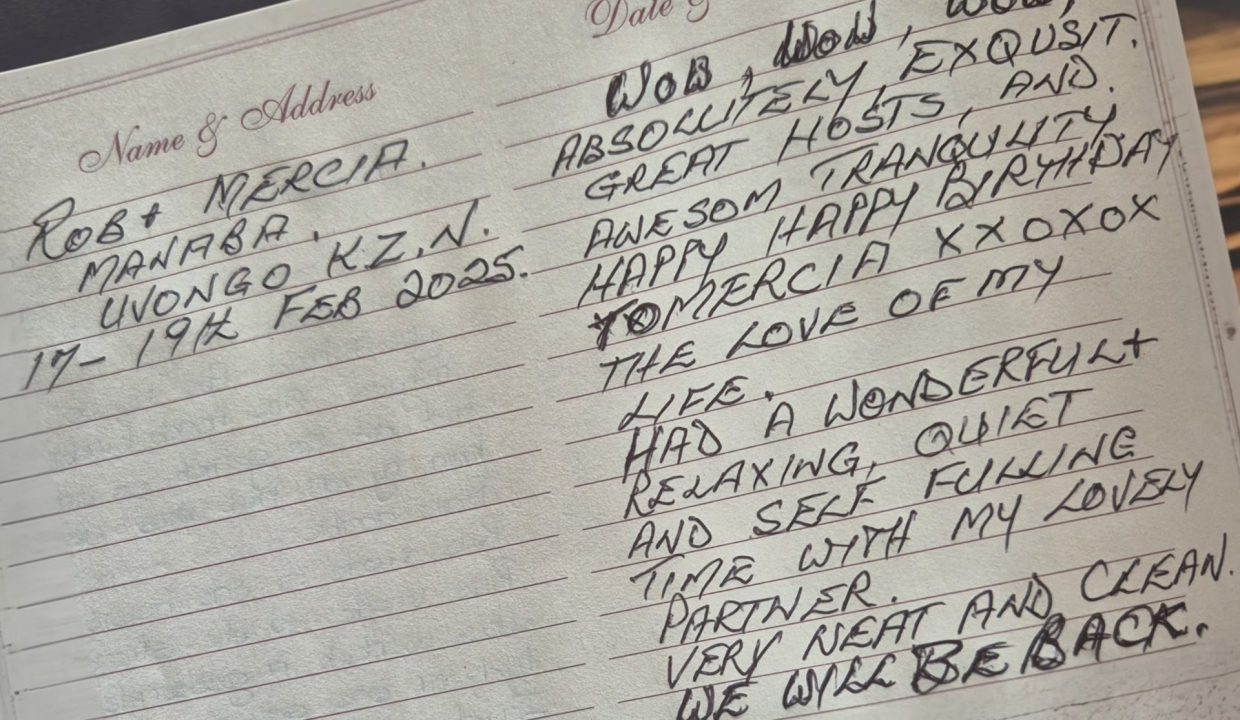 Date &
Name & Address
ROB + MERCIA.
MANABA.
UVONGO K.Z.N.
17 - 19th FEB 2025.
WOW, WOW, WOW,
ABSOLUTELY, EXQUSIT.
GREAT HOSTS, AND.
AWESOM TRANQULITY
HAPPY HAPPY BIRTHDAY
TO MERCIA XXOXOX
THE LOVE OF MY
LIFE.
HAD A WONDERFUL +
RELAXING, QUIET
AND SELF FULLING
TIME WITH MY LOVELY
PARTNER.
VERY NEAT AND CLEAN.
WE WILL BE BACK.